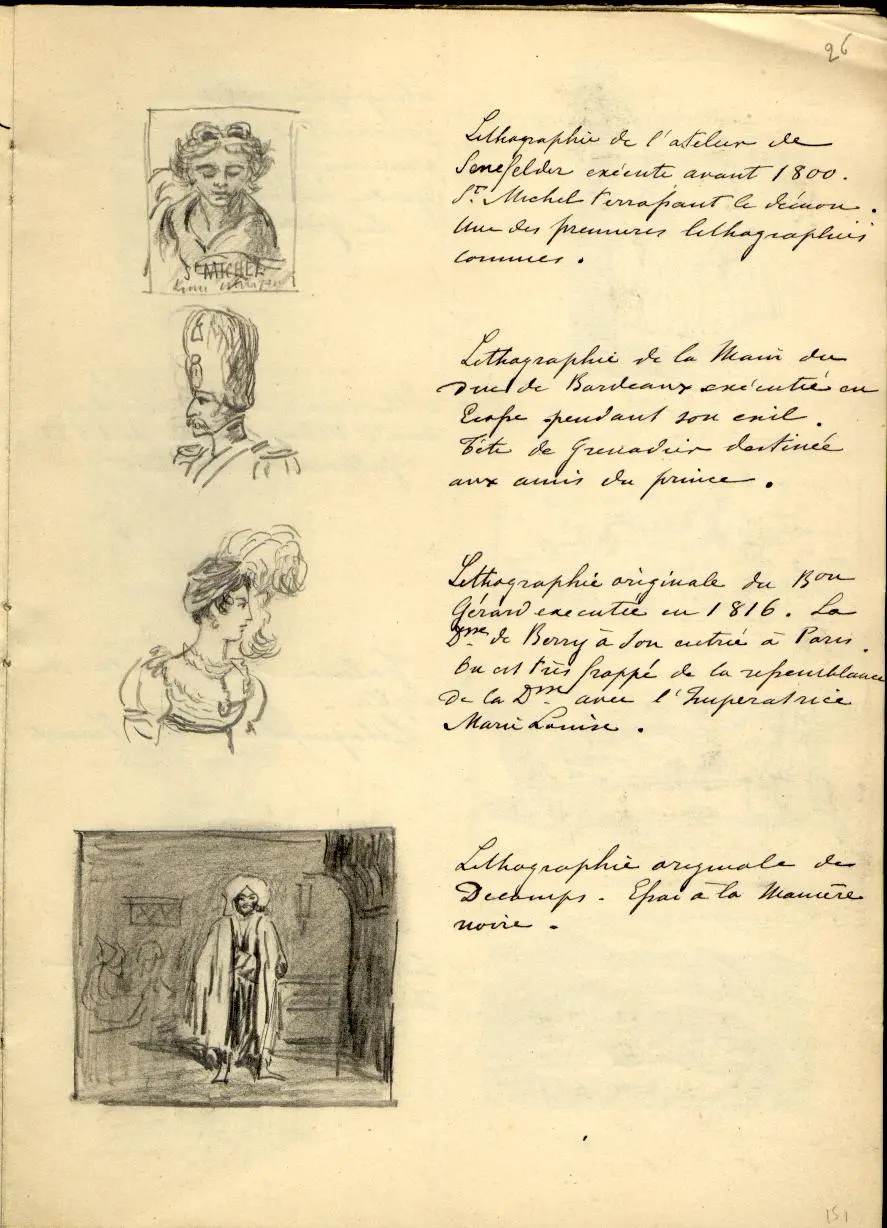 26
Lithographie de l'atelier de
Senefelder exécuté avant 1800.
St Michel terrassant le démon.
Une des premieres lithographies
connues.
St MICHEL
Lithographie de la Main du
Duc de Bordeaux exécutée en
Ecosse pendant son exil.
Tête de Grenadier destinée
aux amis du prince.
Lithographie originale du Bon
Gérard executée en 1816. La
Dsse de Berry à son entrée à Paris.
On est très frappé de la ressemblance
de la Dsse avec l'Imperatrice
Marie Louise.
Lithographie originale de
Decamps. Essai à la Manière
noire.
151